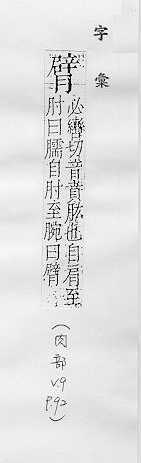 字彙
臂
必彎切音賁肱也自肩至
肘曰臑自肘至腕曰臂
(肉部 V.9 P.92)